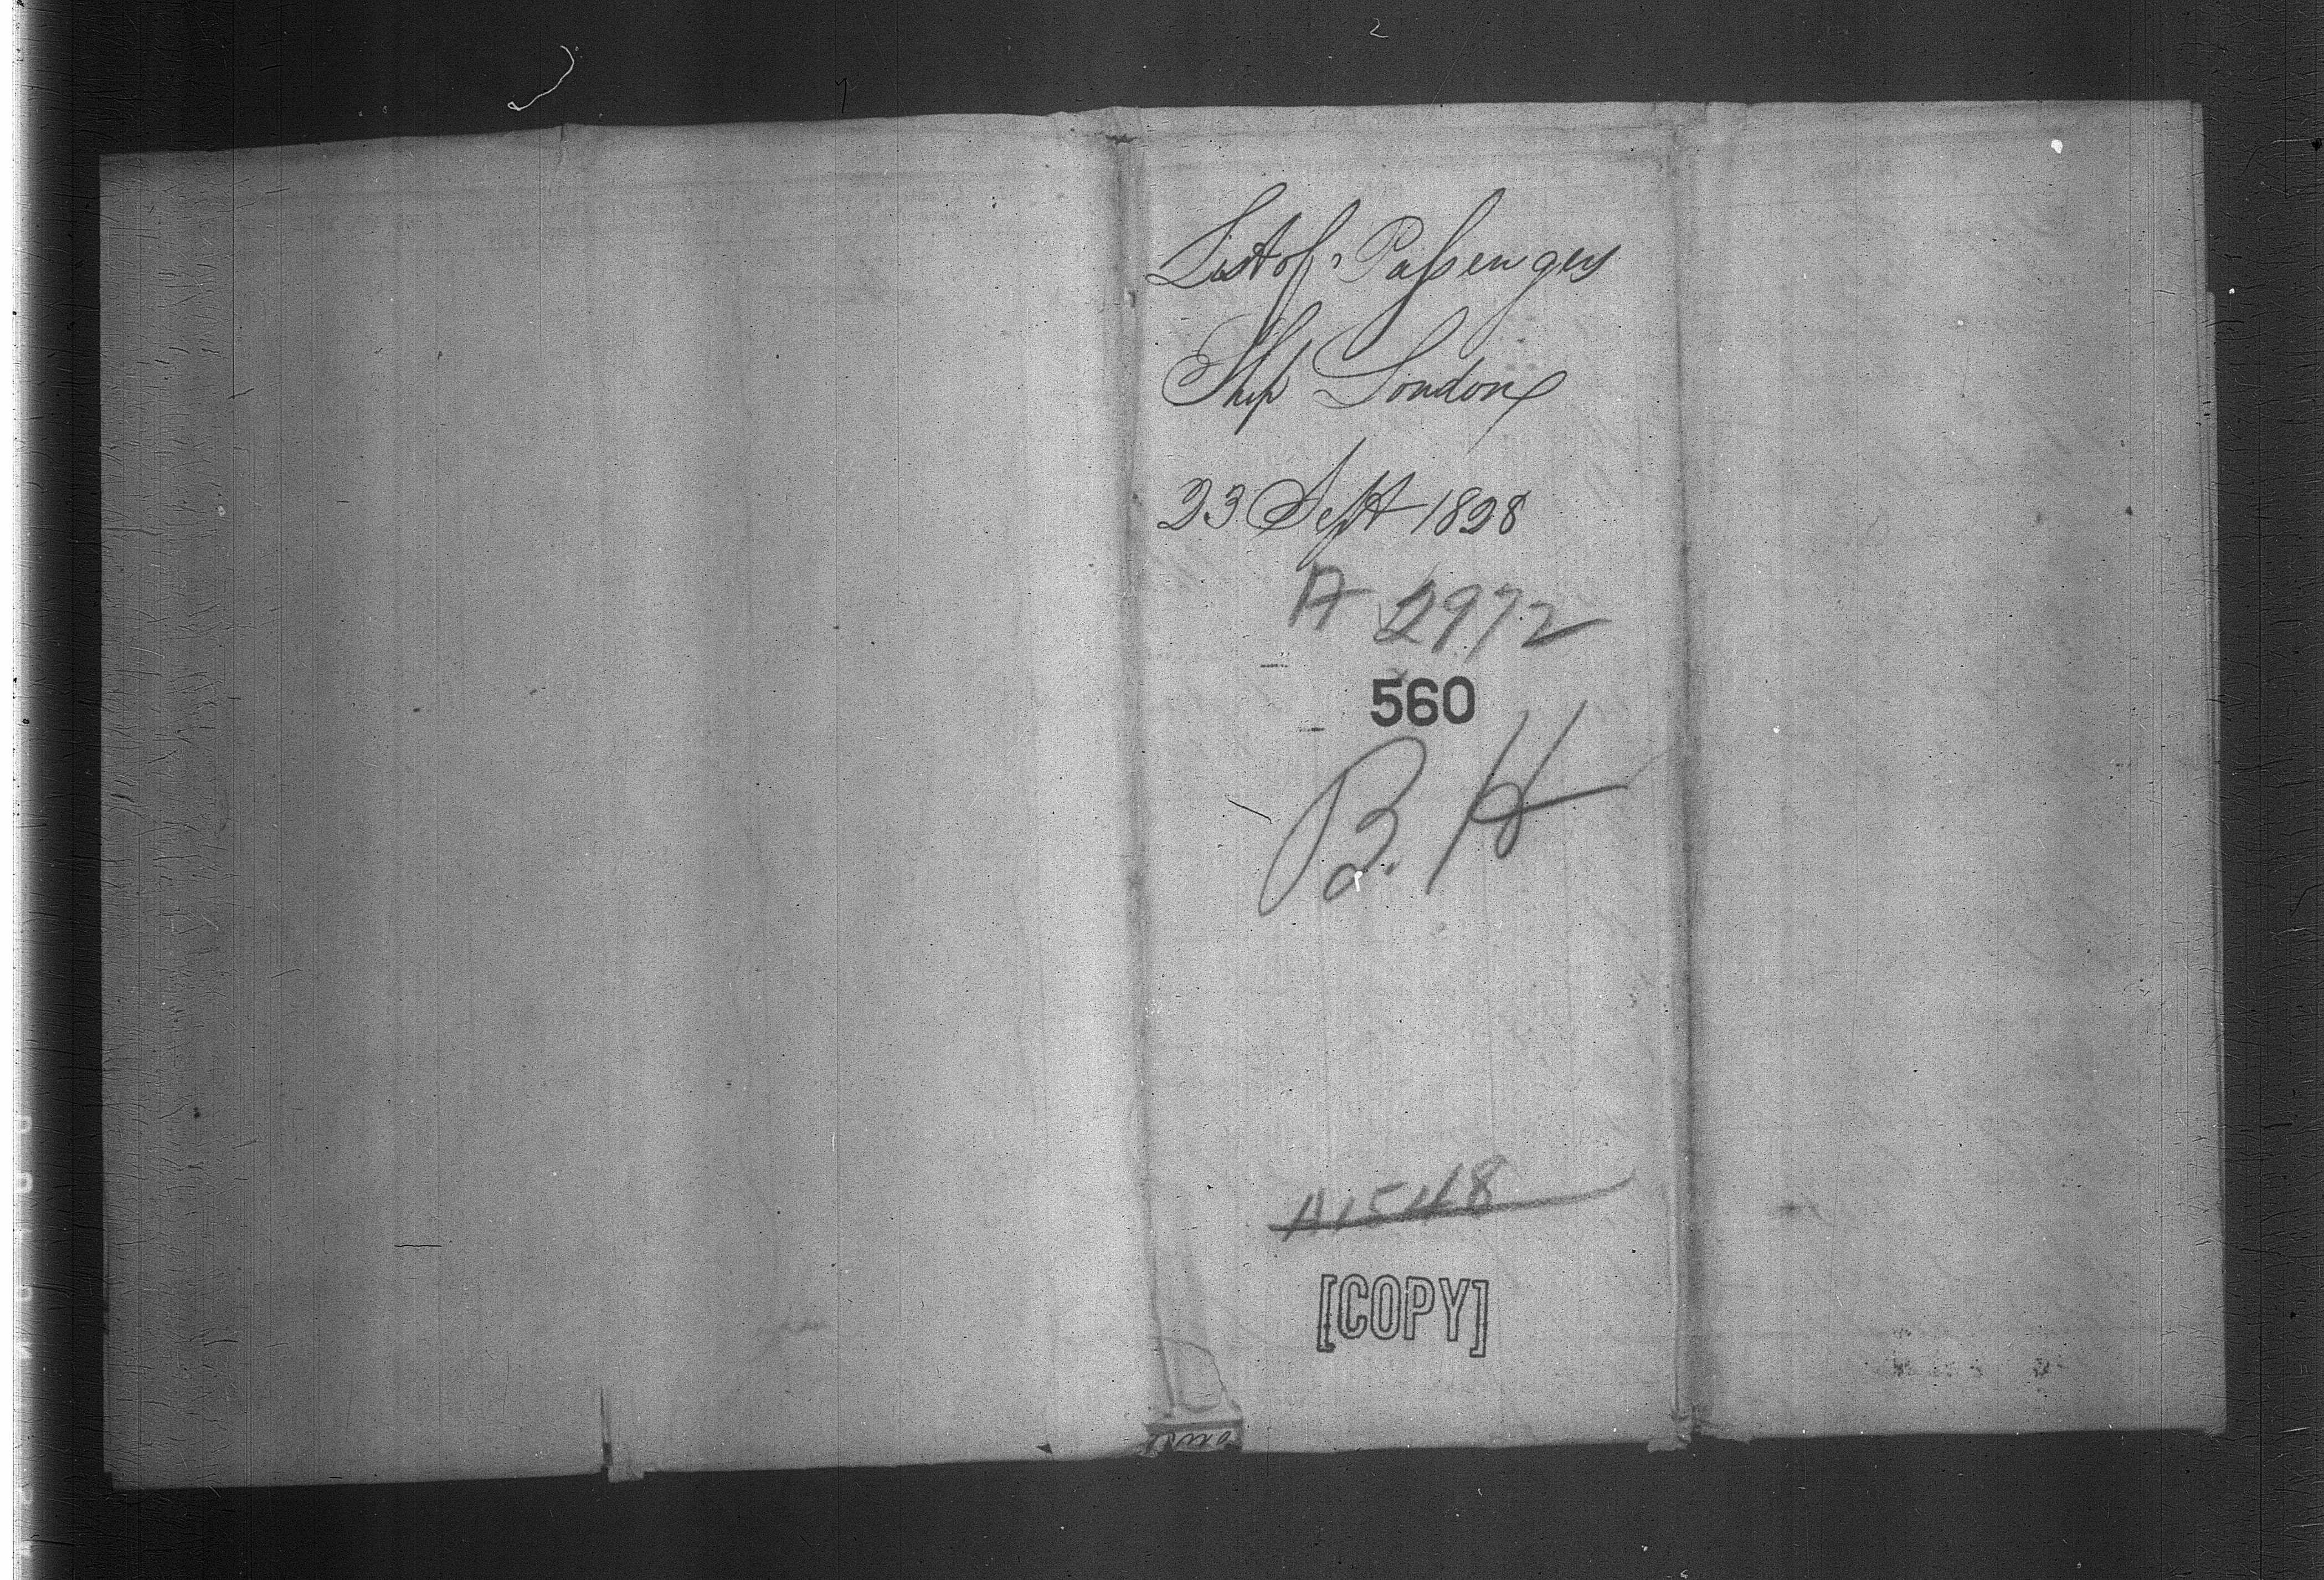 List of Passengers
Ship London
23 Sept 1828
A 2972
560
B. H
A1548
[COPY]